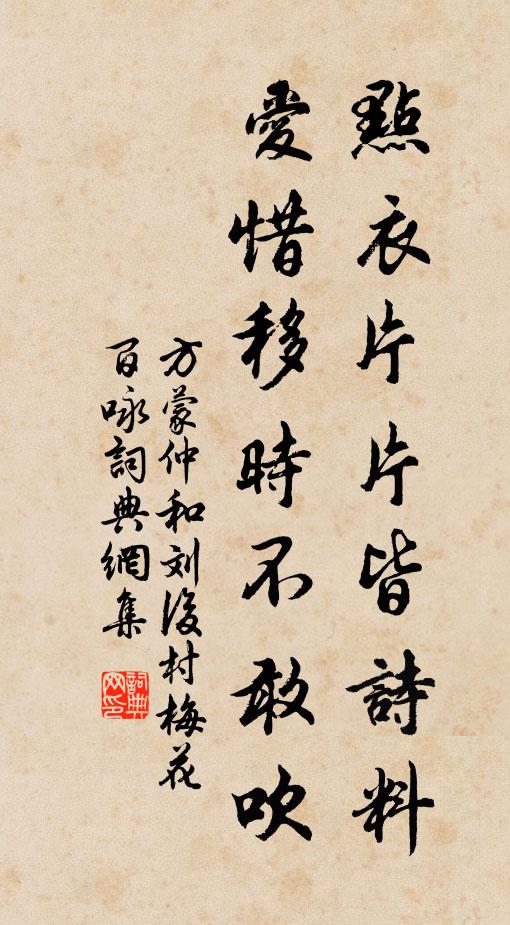 點衣片片皆詩料
愛惜移時不敢吹
方蒙仲和刘後村梅花
百咏詞典網集
詞典网印